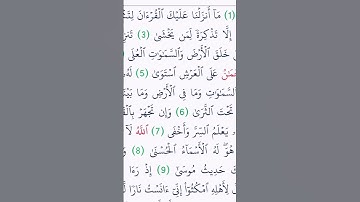 (1) مَآ أَنزَلْنَا عَلَيْكَ ٱلْقُرْءَانَ
إِلَّا تَذْكِرَةً لِّمَن يَخْشَىٰ (3)
خَلَقَ ٱلْأَرْضَ وَٱلسَّمَٰوَٰتِ ٱلْعُلَى
عَلَى ٱلْعَرْشِ ٱسْتَوَىٰ (5)
وَمَا فِى ٱلْأَرْضِ وَمَا
تَحْتَ ٱلثَّرَىٰ (6) وَإِن تَجْهَرْ
يَعْلَمُ ٱلسِّرَّ وَأَخْفَى (7) ٱللَّهُ لَآ
هُوَ ۖ لَهُ ٱلْأَسْمَآءُ ٱلْحُسْنَىٰ (8)
حَدِيثُ مُوسَىٰٓ (9) إِذْ رَءَا
لِأَهْلِهِ ٱمْكُثُوٓا۟ إِنِّىٓ ءَانَسْتُ نَارًا